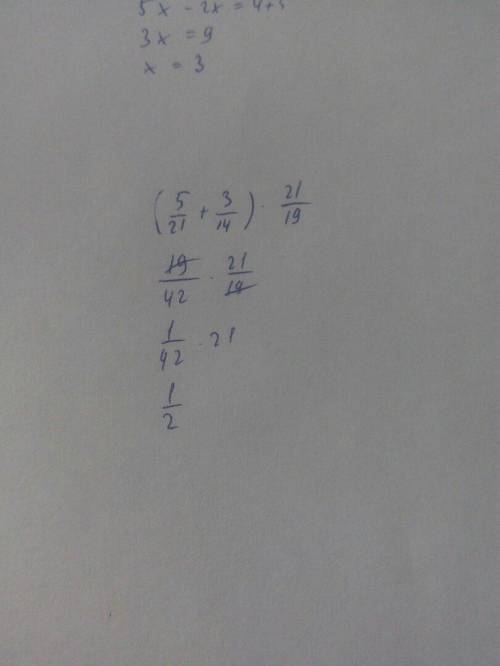 5x - 2x = 4+5
3x = 9
x = 3
(5/21 + 3/14) · 21/19
19/42 · 21/19
1/42 · 21
1/2